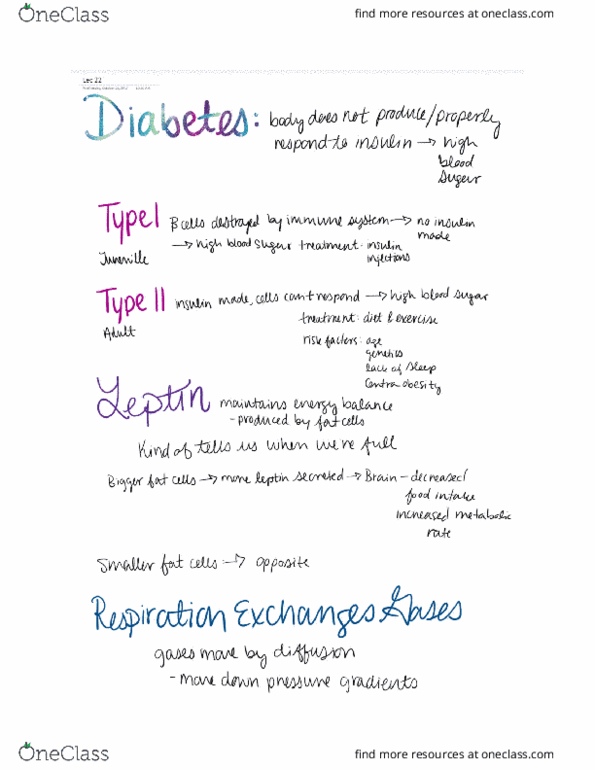 OneClass
find more resources at oneclass.com
Lec 22
Diabetes: body does not produce/properly
respond to insulin → high
blood
sugar
Type I B cells destroyed by immune system → no insulin
made
Juneville → high blood sugar treatment: insulin
injections
Type II insulin made, cells can't respond → high blood sugar
Adult
treatment: diet & exercise
risk factors: age
genetics
lack of sleep
Centra obesity
Leptin maintains energy balance
- produced by fat cells
Kind of tells us when we're full
Bigger fat cells → more leptin secreted → Brain - decreased
food intake
increased metabolic
rate
Smaller fat cells → opposite
Respiration Exchanges Gases
gases move by diffusion
- move down pressure gradients
OneClass
find more resources at oneclass.com